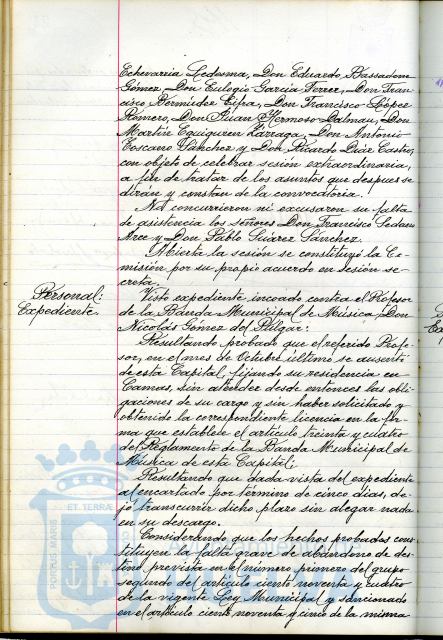 Echevarria Ledesma, Don Eduardo Bassadone
Gómez, Don Eulogio Garcia Ferrer, Don Fran-
cisco Bermúdez Cifra, Don Francisco López
Romero, Don Juan Hermoso Dalmau, Don
Martin Eguiguren Lárraga, Don Antonio
Toscano Sánchez y Don Ricardo Diáz Castro,
con objeto de celebrar sesión extraordinaria,
a fin de tratar de los asuntos que despues se
dirán y constan de la convocatoria.
No concurrieron ni excusaron su falta
de asistencia los señores Don Francisco Sedano
Arce y Don Pablo Suárez Sánchez.
Abierta la sesión se constituyó la Co-
misión por su propio acuerdo en sesión se-
creta.
Personal:
Expediente.
Visto expediente incoado contra el Profesor
de la Banda Municipal de Música, Don
Nicolás Gómez del Pulgar:
Resultando probado que el referido Profe-
sor, en el mes de Octubre último se ausentó
de esta Capital fijando su residencia en
Camas, sin atender desde entonces las obli-
gaciones de su cargo y sin haber solicitado y
obtenido la correspondiente licencia en la for-
ma que establece el artículo treinta y cuatro
del Reglamento de la Banda Municipal de
Música de esta Capital:
Resultando que dada vista del expediente
al encartado por término de cinco dias, de-
jó transcurrir dicho plazo sin alegar nada
en su descargo.
Considerando que los hechos probados cons-
tituyen la falta grave de abandono de des-
tino prevista en el número primero del grupo
segundo del artículo ciento noventa y cuatro
de la vigente Ley Municipal y sancionado
en el artículo ciento noventa y cinco de la misma
PORTUS MARIS
ET TERRÆ